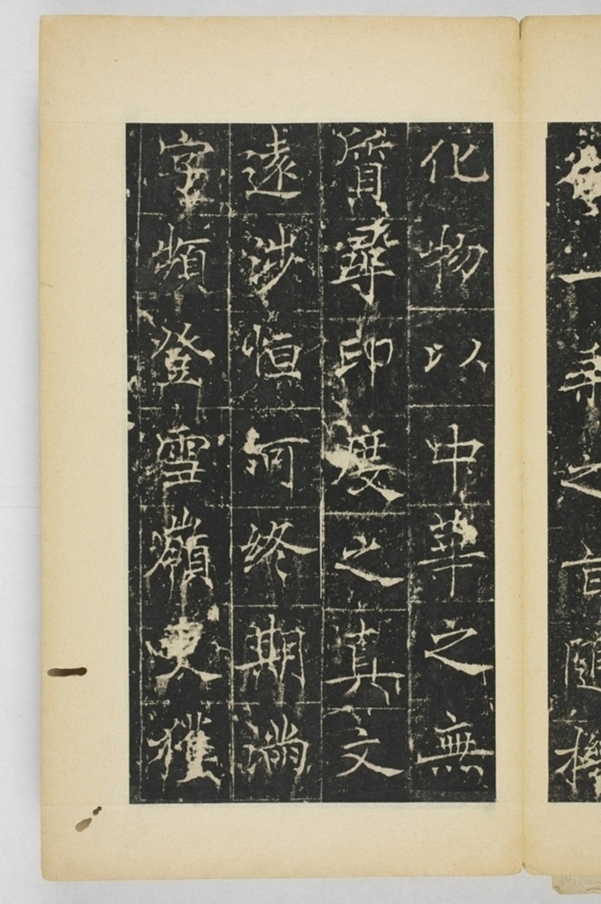 一乘之旨隨機
化物以中華之無
質尋印度之真文
遠涉恒河終期滿
字頻登雪嶺更獲